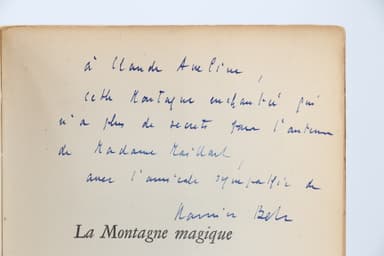 à Claude Aveline,
cette Montagne enchantée qui
n'a plus de secrets pour l'auteur
de Madame Maillart,
avec l'amicale sympathie de
Maurice Betz
La Montagne magique